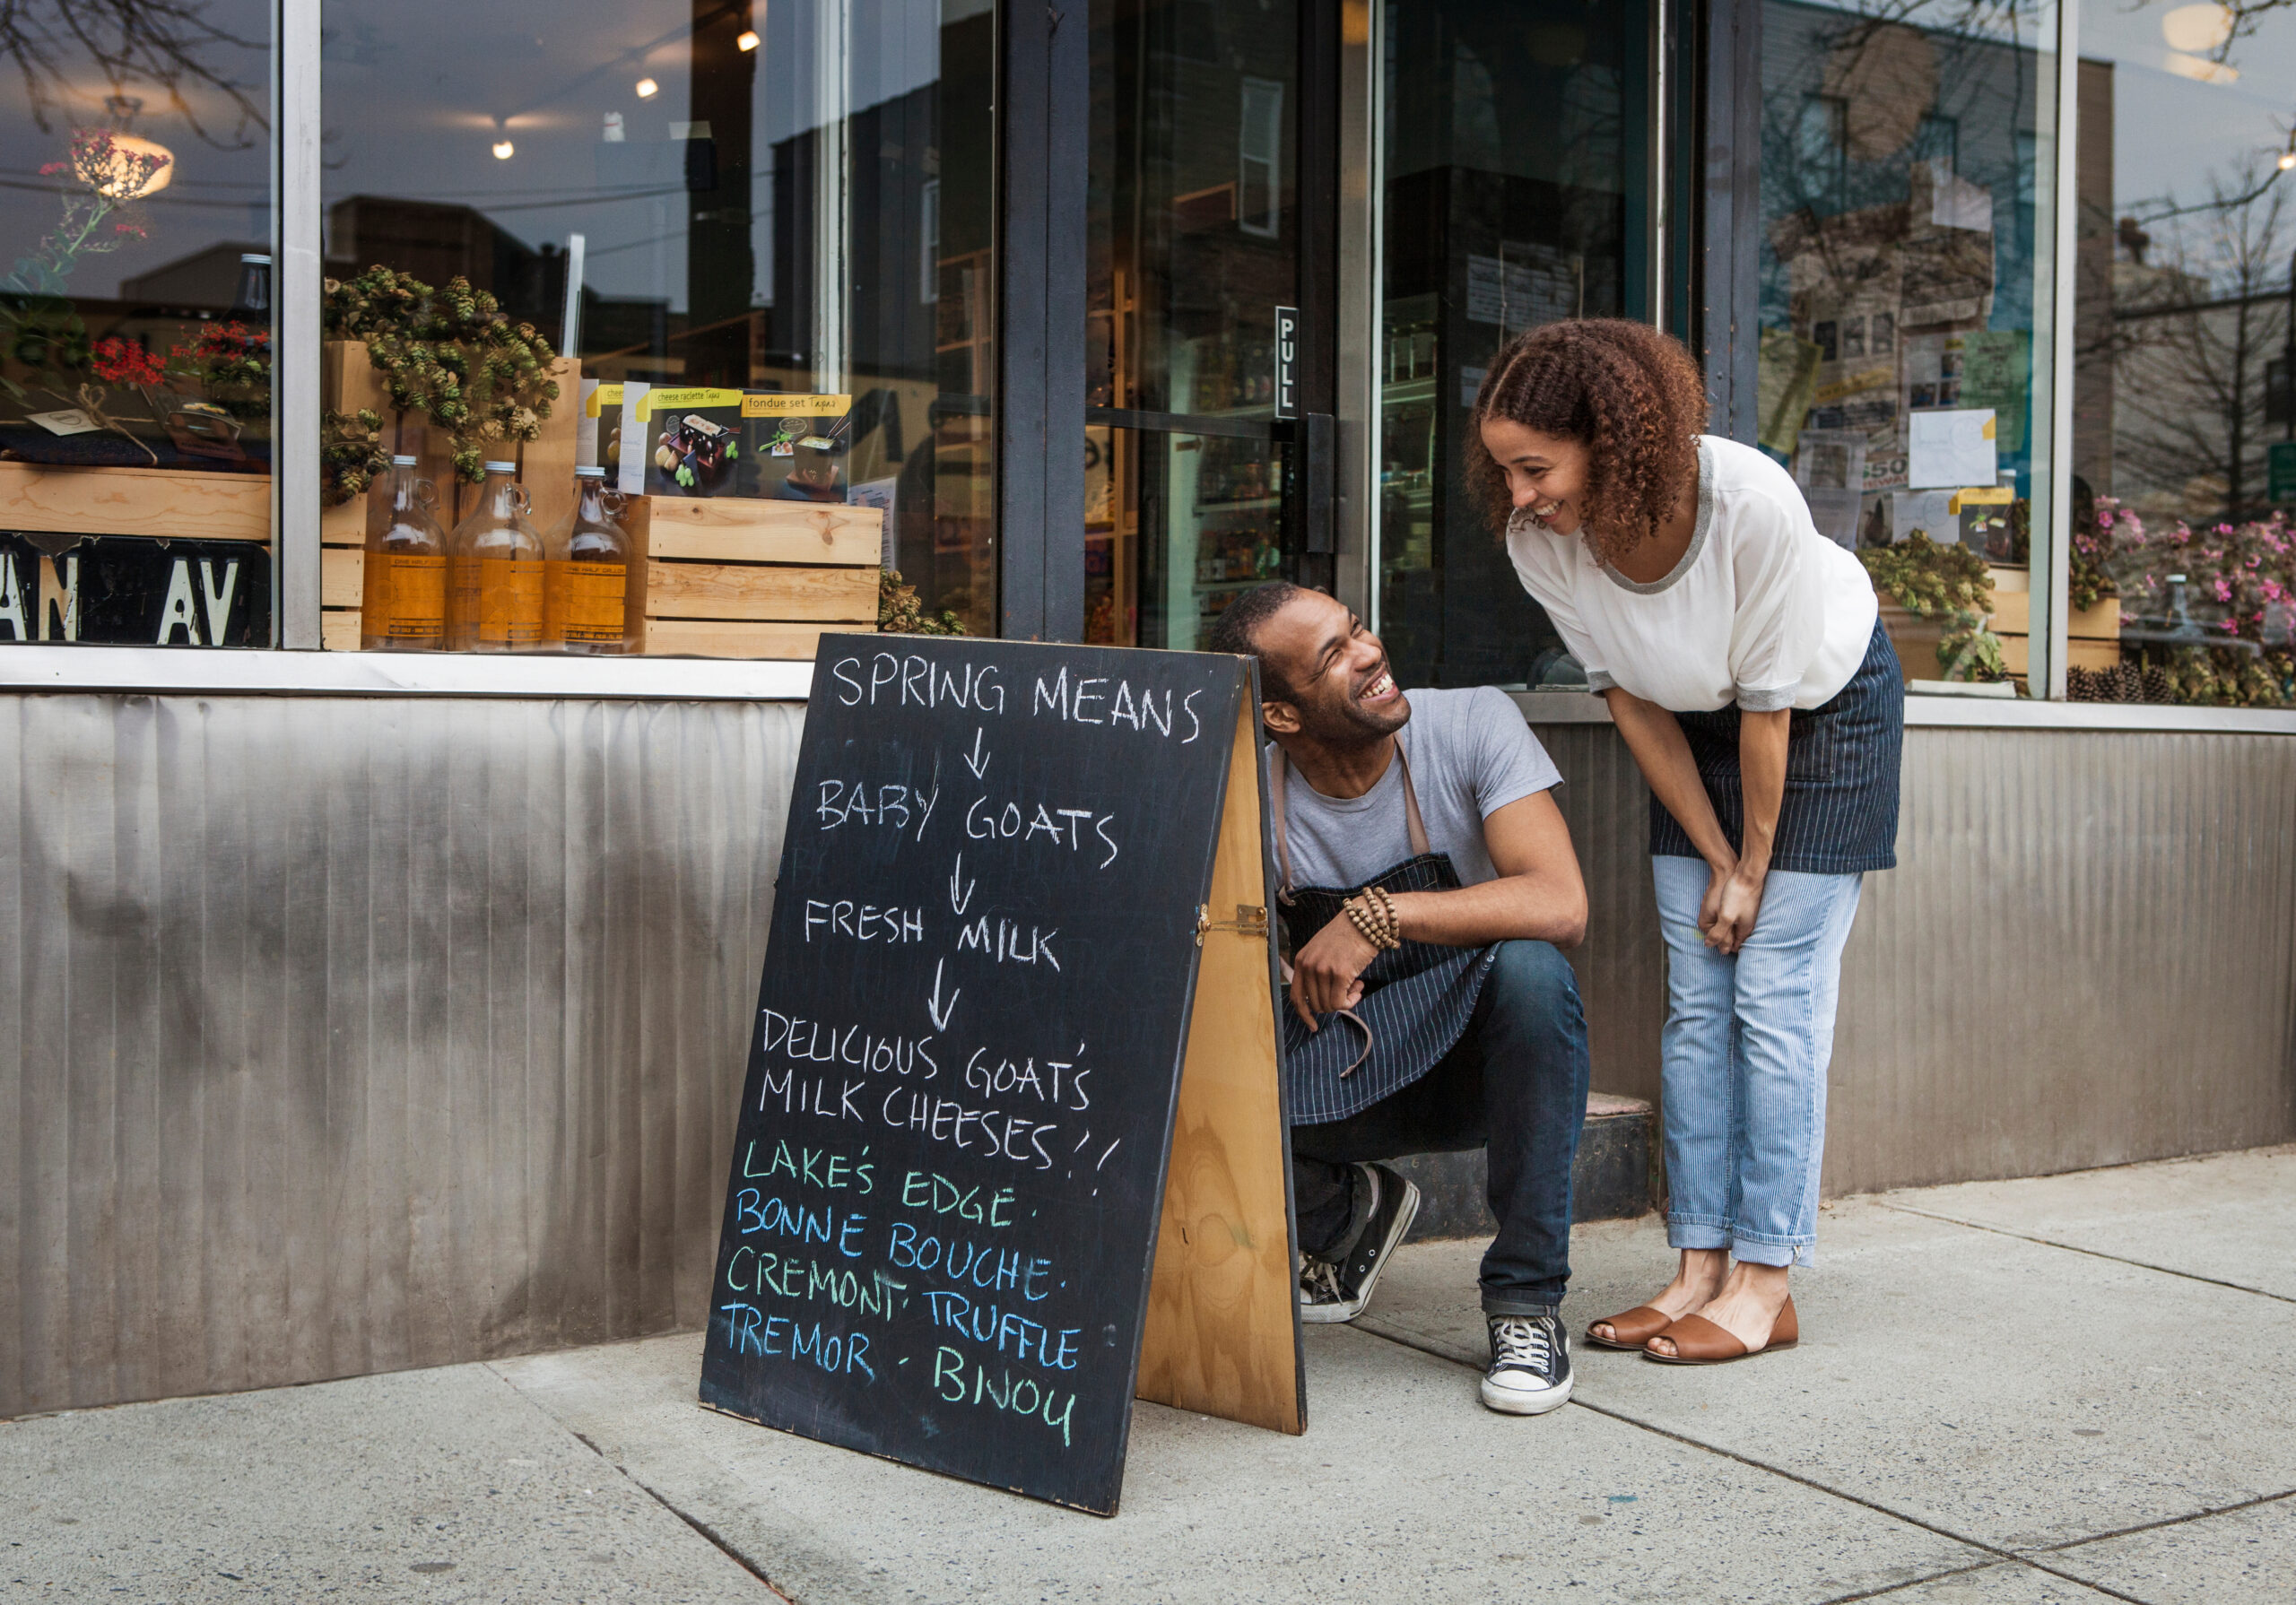 SPRING MEANS
↓
BABY GOATS
↓
FRESH MILK
↓
DELICIOUS GOAT'S
MILK CHEESES!!
LAKE'S EDGE ·
BONNE BOUCHE ·
CREMONT · TRUFFLE
TREMOR · BIJOU
PULL
cheese raclette
fondue set
AN AV
$50